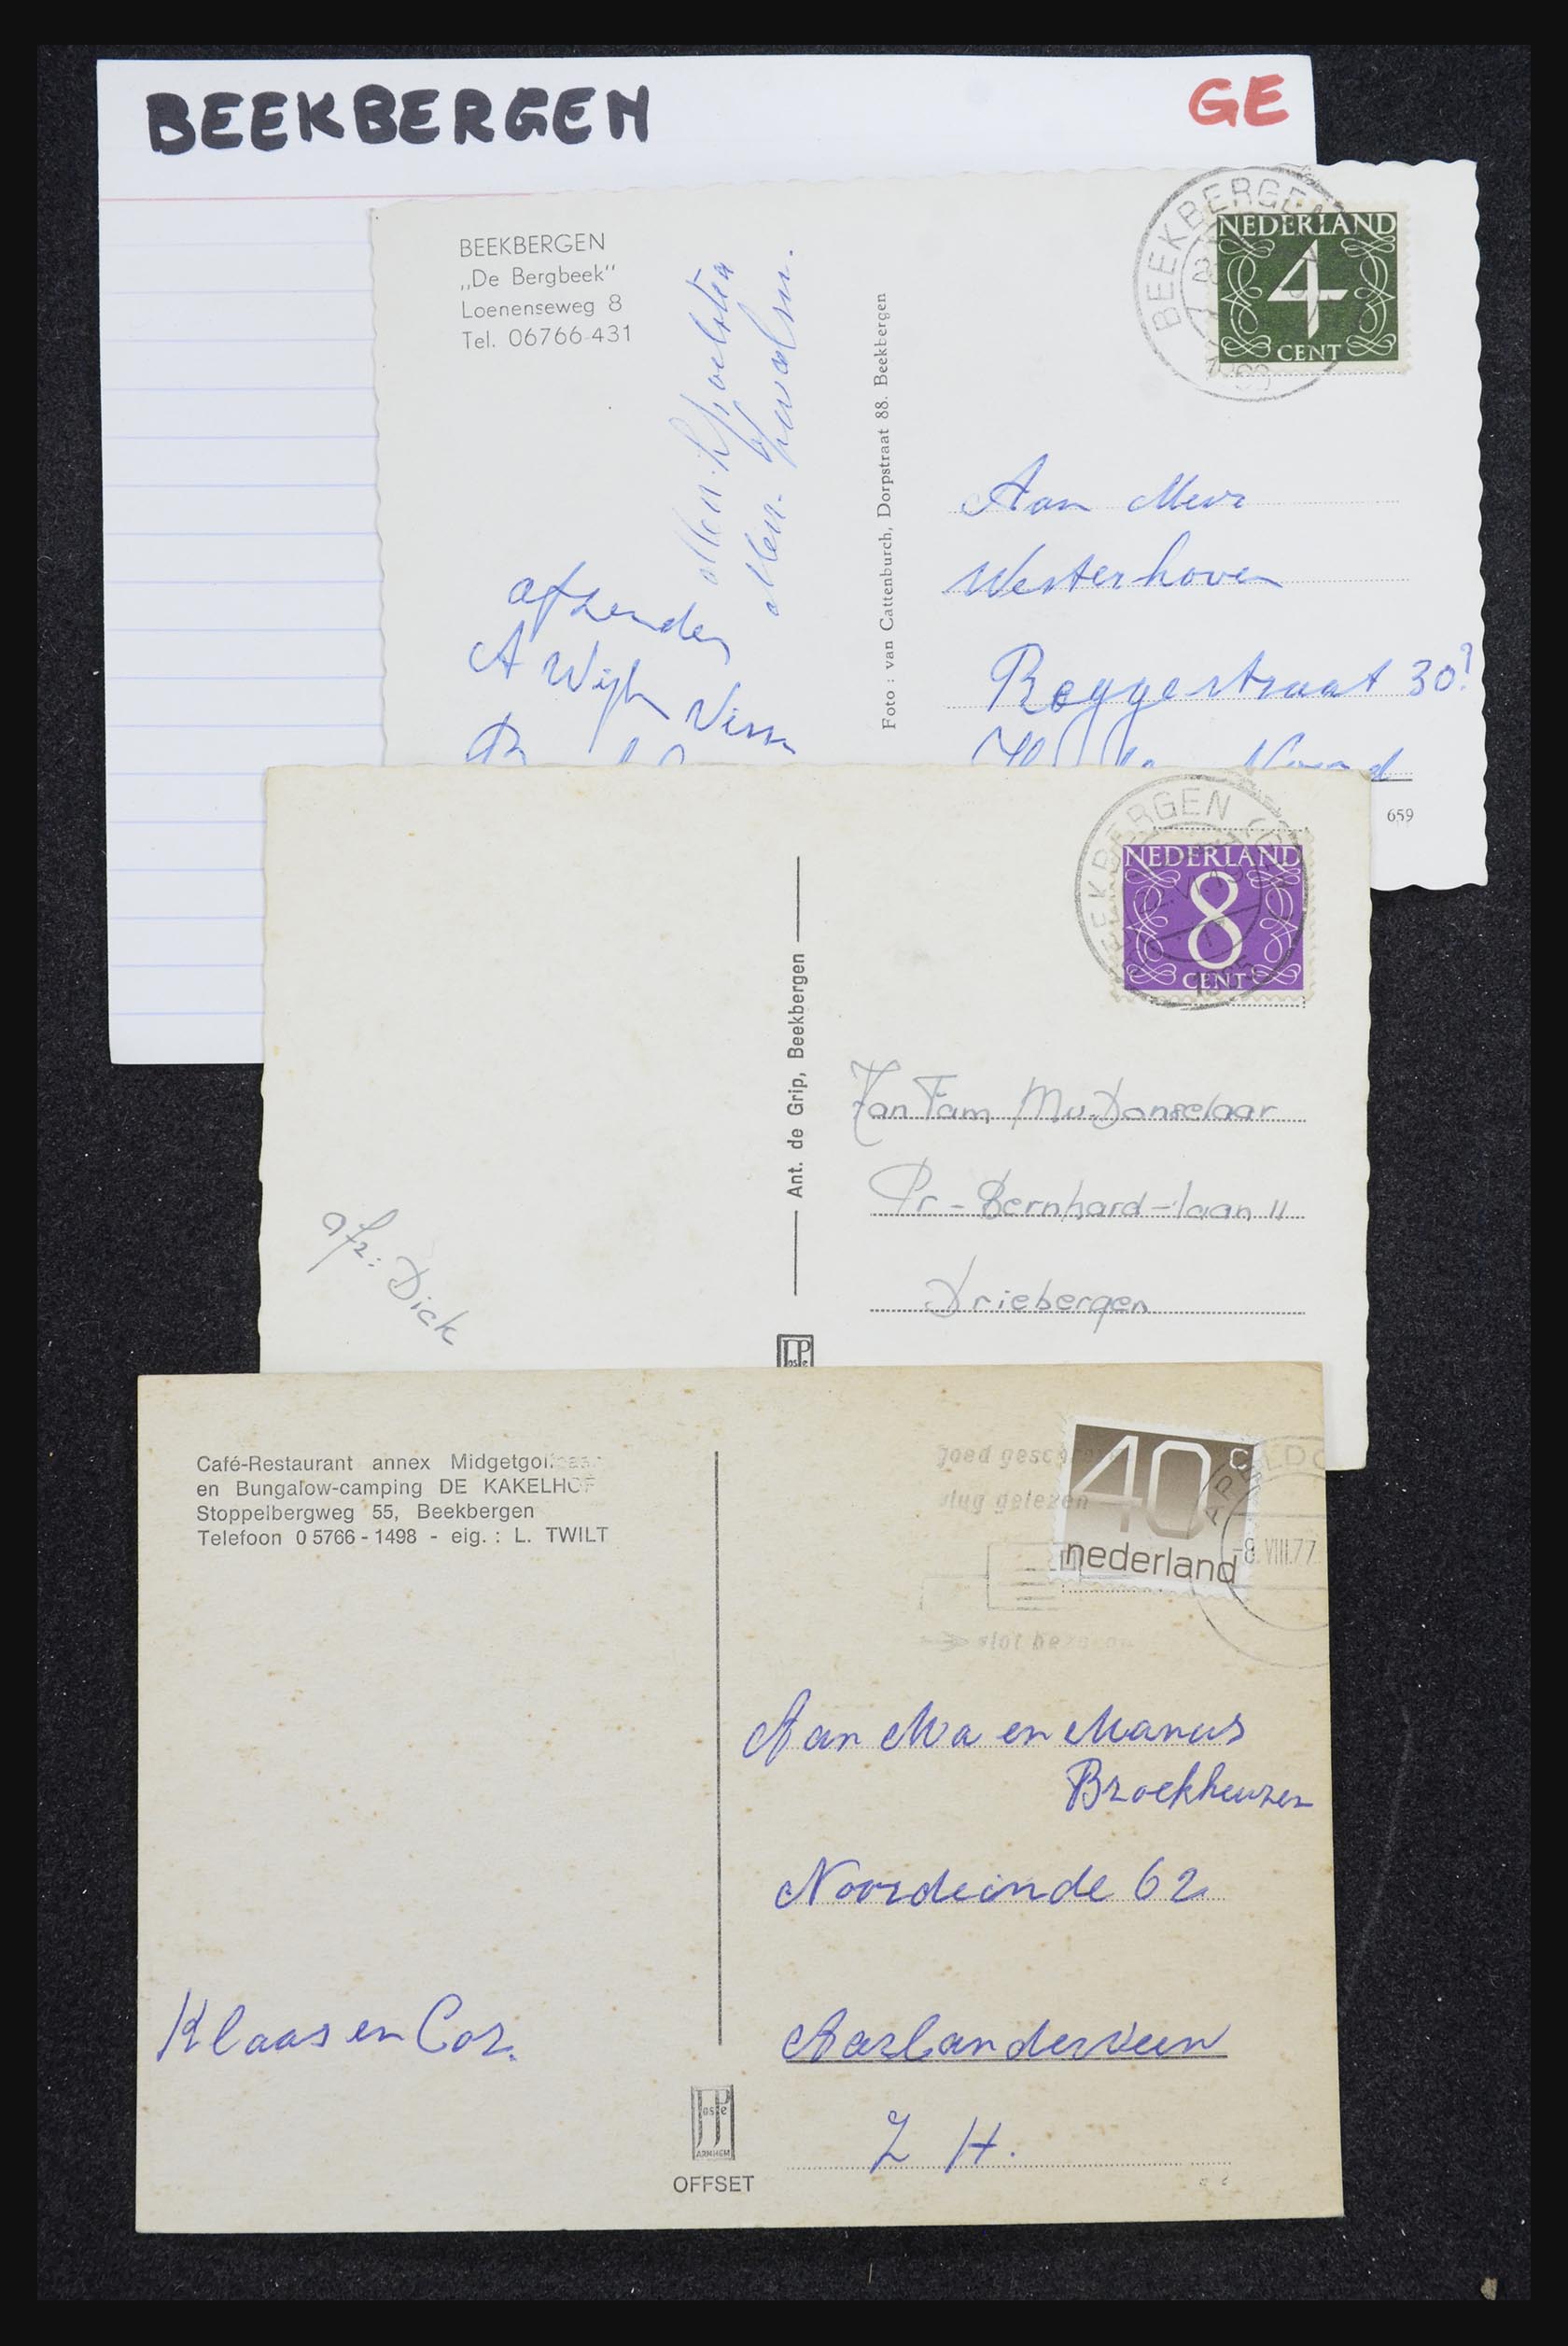 BEEKBERGEN
GE
BEEKBERGEN
„De Bergbeek"
Loenenseweg 8
Tel. 06766-431
BEEKBERGEN
NEDERLAND
4
CENT
afzender
A Wijh
Foto : van Cattenburch, Dorpstraat 88. Beekbergen
Aan Mevr
Westerhoven
Roggestraat 30?
659
BEEKBERGEN
NEDERLAND
8
CENT
Ant. de Grip, Beekbergen
Fam M v. Donselaar
Pr - Bernhard - laan 11
Driebergen
afz: Dick
JosPe
Café-Restaurant annex
en Bungalow-camping DE KAKELHOF
Stoppelbergweg 55, Beekbergen
Telefoon 05766-1498 - eig.: L. TWILT
goed
vlug gelezen
vlot
40 c
nederland
-8.VIII.77
Aan Ma en Manus
Broekheuzen
Noordeinde 62
Aarlanderveen
Z H.
Klaas en Cor.
JosPe
ARNHEM
OFFSET